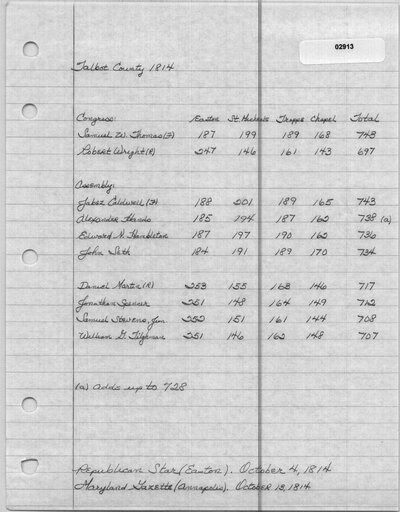 02913
Talbot County 1814
Congress: Easton St. Michaels Trappe Chapel Total
Samuel W. Thomas (F) 187 199 189 168 743
Robert Wright (R) 247 146 161 143 697
Assembly:
Jabez Caldwell (F) 188 201 189 165 743
Alexander Hands 185 194 187 162 738 (a)
Edward N. Hambleton 187 197 190 162 736
John Seth 184 191 189 170 734
Daniel Martin (R) 253 155 163 146 717
Jonathan Spencer 251 148 164 149 712
Samuel Stevens, Jun. 252 151 161 144 708
William G. Tilghman 251 146 162 148 707
(a) Adds up to 728
Republican Star (Easton). October 4, 1814
Maryland Gazette (Annapolis). October 13, 1814